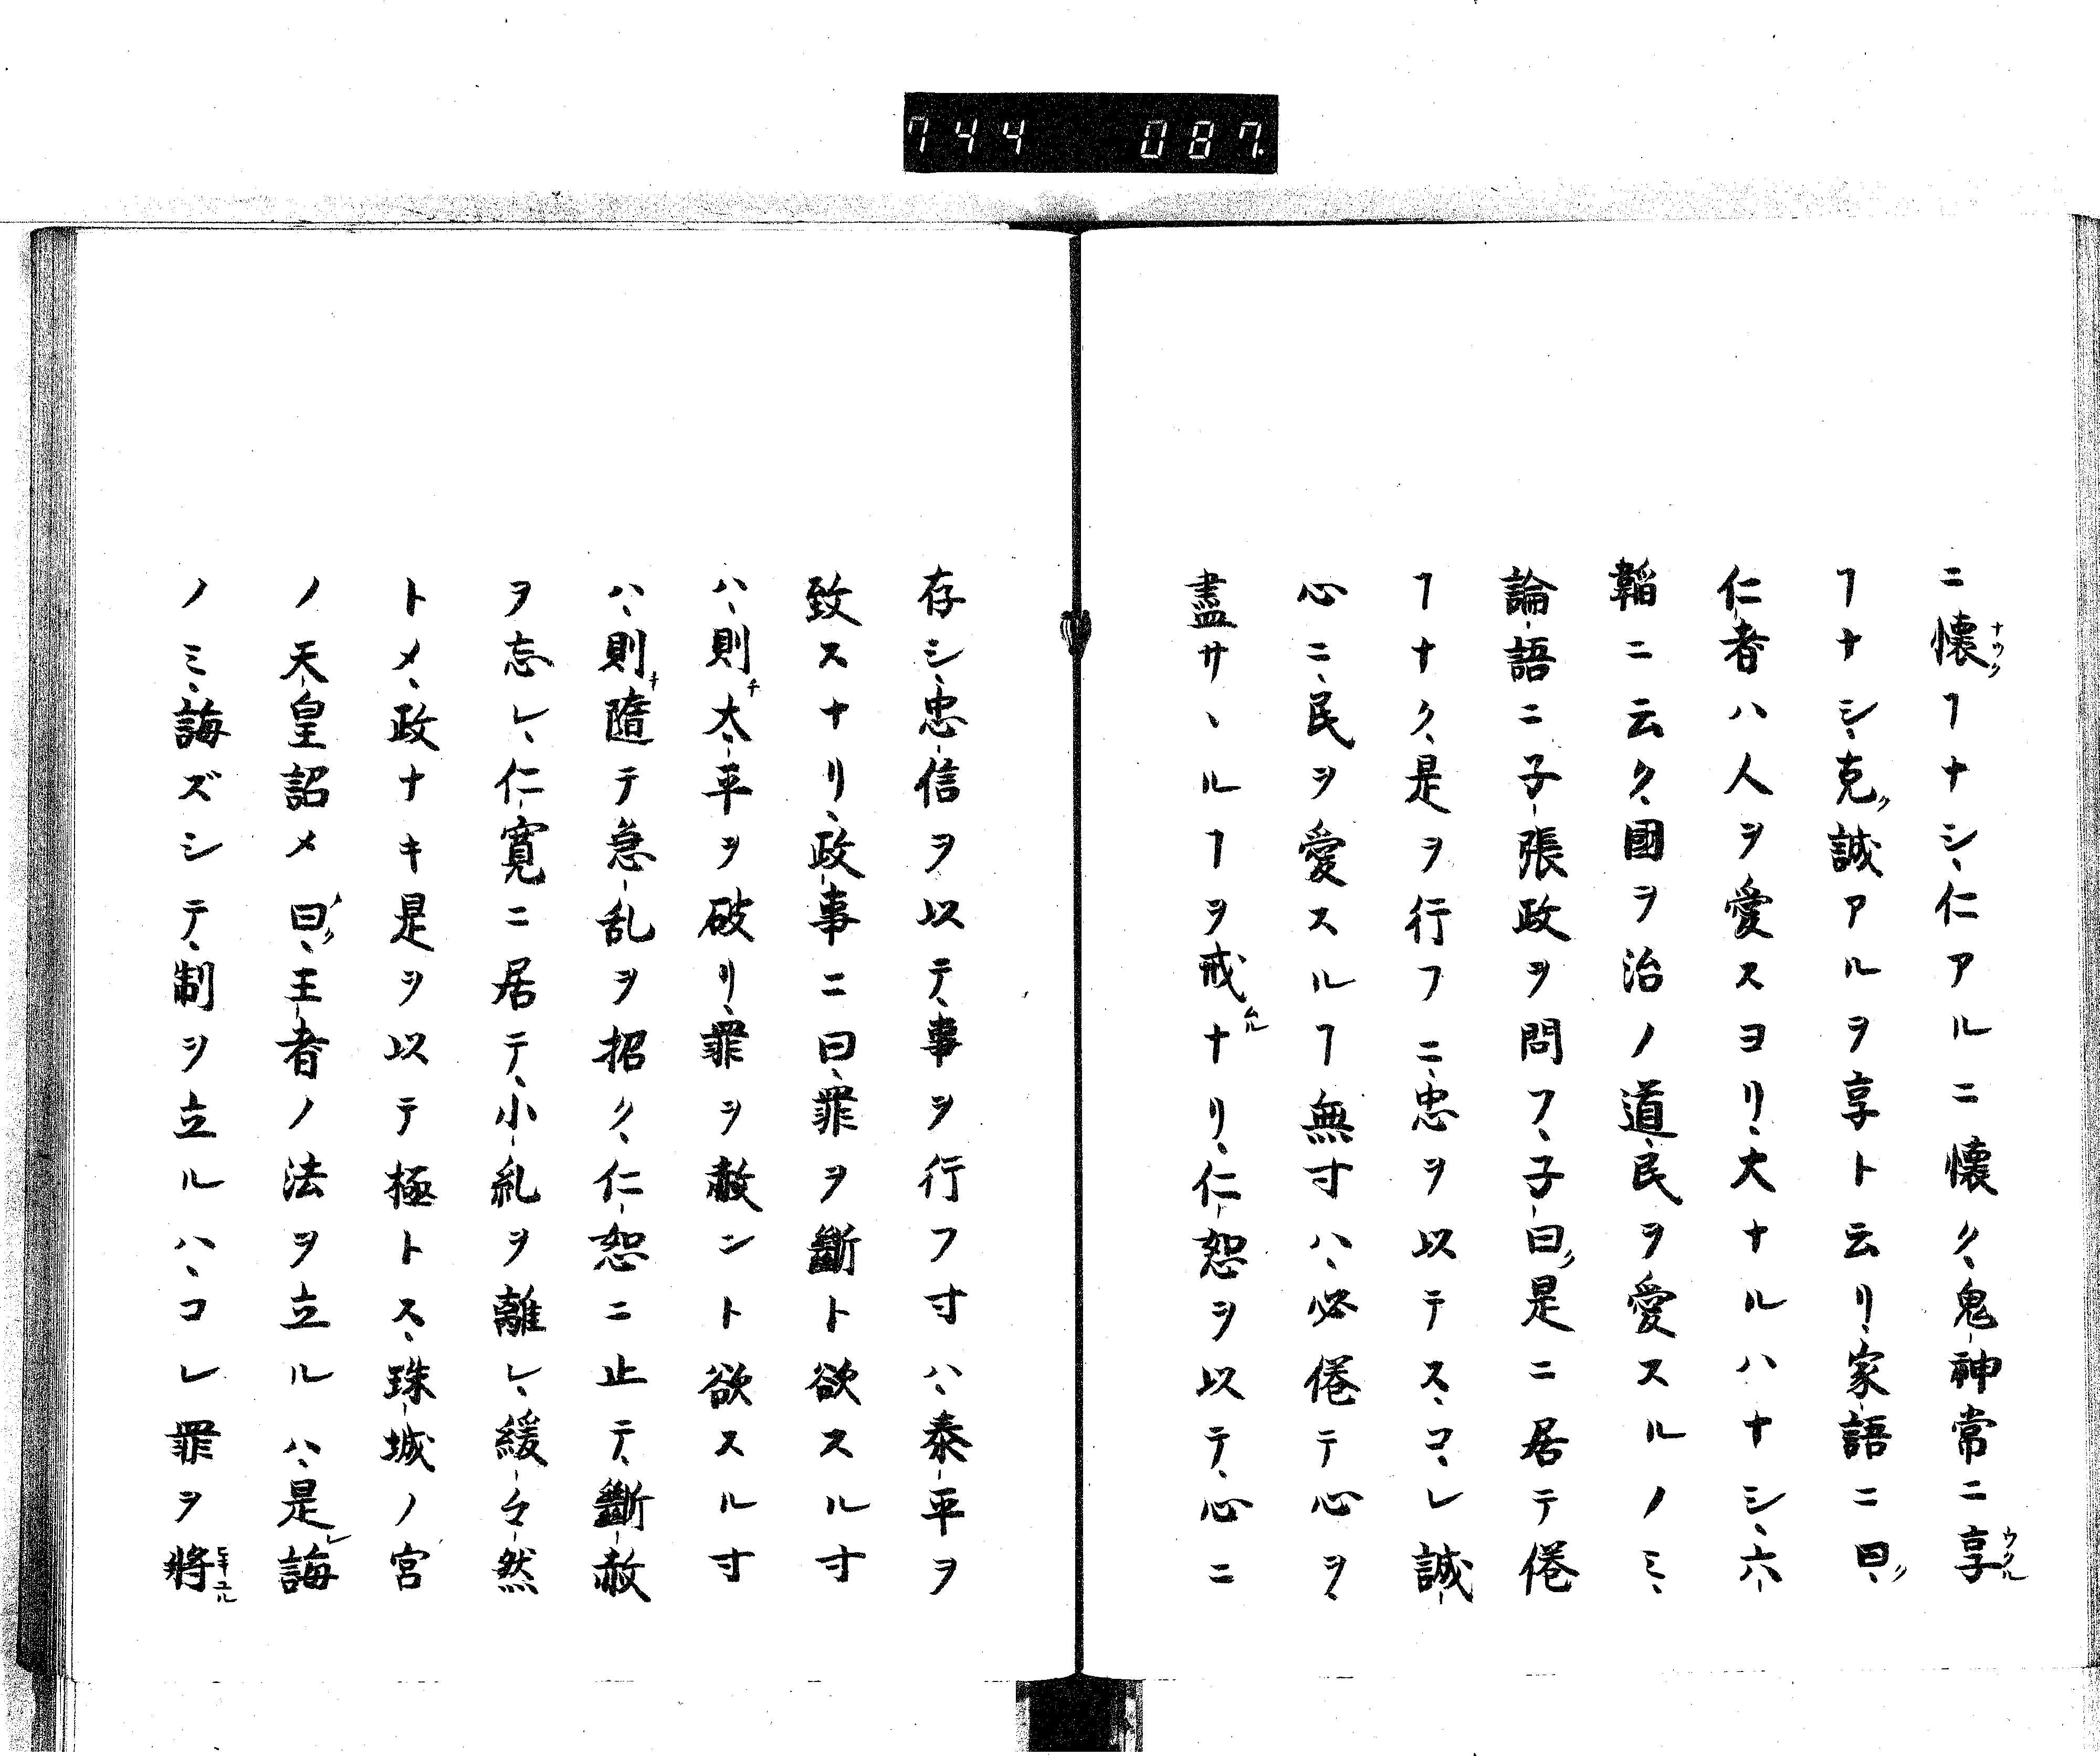 744 087.
ニ懐ナツクヿナシ、仁アルニ懐ク、鬼神常ニ享ウクル
ヿナシ、克ク誠アルヲ享ト云リ、家語ニ曰ク、
仁者ハ人ヲ愛スヨリ、大ナルハナシ、六
韜ニ云ク、國ヲ治ノ道、民ヲ愛スルノミ、
論語ニ子張政ヲ問フ、子曰ク是ニ居テ倦
ヿナク、是ヲ行フニ、忠ヲ以テス、コヽレ誠
心ニ、民ヲ愛スルヿ無寸ハ、必倦テ心ヲ、
盡サヽルヿヲ戒ムルナリ、仁恕ヲ以テ、心ニ
存シ、忠信ヲ以テ、事ヲ行フ寸ハ、泰平ヲ
致スナリ、政事ニ曰、罪ヲ斷ト欲スル寸
ハ、則チ太平ヲ破リ、罪ヲ赦ント欲スル寸
ハ、則チ隨テ急乱ヲ招ク、仁恕ニ止テ、斷赦
ヲ忘レ、仁寛ニ居テ、小糺ヲ離レ、緩々然
トメ、政ナキ是ヲ以テ極トス、珠城ノ宮
ノ天皇詔メ曰ク、王者ノ法ヲ立ルハ、是レ誨
ノミ、誨ズシテ、制ヲ立ルハ、コレ罪ヲ將ヒキユル